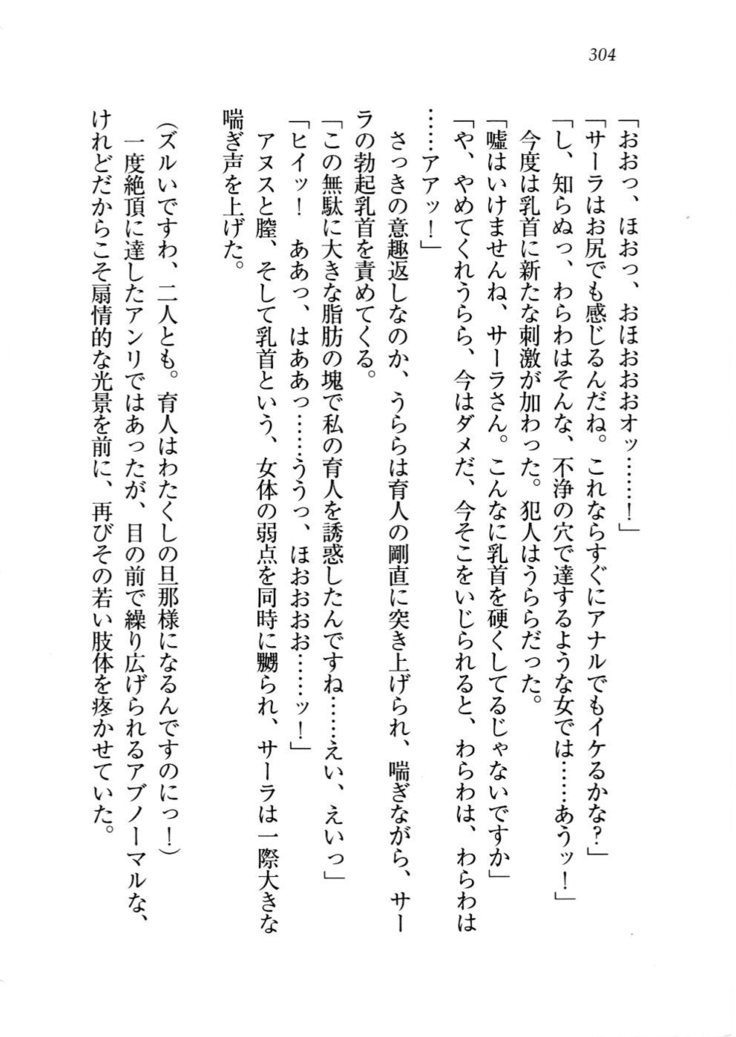 304
「おおっ、ほおっ、おほおおおオッ……！」
「サーラはお尻でも感じるんだね。これならすぐにアナルでもイケるかな？」
「し、知らぬっ、わらわはそんな、不浄の穴で達するような女では……あうッ！」
今度は乳首に新たな刺激が加わった。犯人はうららだった。
「嘘はいけませんね、サーラさん。こんなに乳首を硬くしてるじゃないですか」
「や、やめてくれうらら、今はダメだ、今そこをいじられると、わらわは、わらわは
……アアッ！」
さっきの意趣返しなのか、うららは育人の剛直に突き上げられ、喘ぎながら、サー
ラの勃起乳首を責めてくる。
「この無駄に大きな脂肪の塊で私の育人を誘惑したんですね……えい、えいっ」
「ヒイッ！　ああっ、はああっ……ううっ、ほおおおお……ッ！」
アヌスと膣、そして乳首という、女体の弱点を同時に嬲られ、サーラは一際大きな
喘ぎ声を上げた。
（ズルいですわ、二人とも。育人はわたくしの旦那様になるんですのにっ！）
一度絶頂に達したアンリではあったが、目の前で繰り広げられるアブノーマルな、
けれどだからこそ扇情的な光景を前に、再びその若い肢体を疼かせていた。